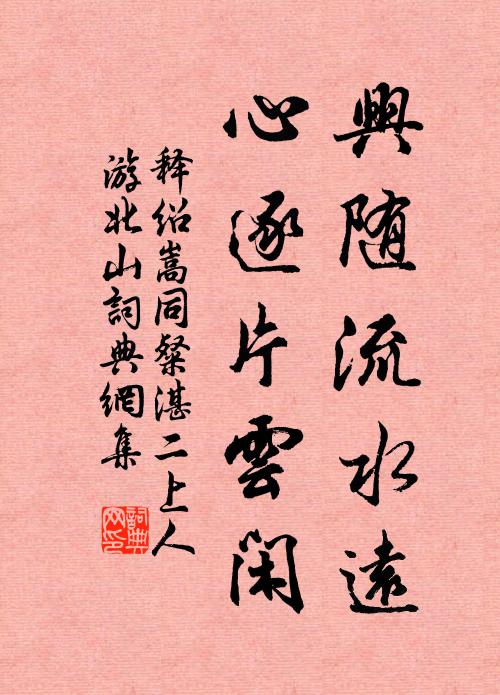 興随流水遠
心逐片雲閑
释绍嵩同粲湛二上人
游北山詞典網集
詞典网印